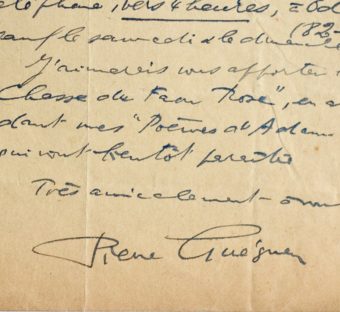 téléphone, vers 4 heures, = Od
(82-
sauf le samedi & le dimanche
J'aimerais vous apporter
Chasse du Faon Rose", en a
dant mes "Poèmes d'Adam
qui vont bientôt paraître
Très amicalement à vous
Pierre Guéguen